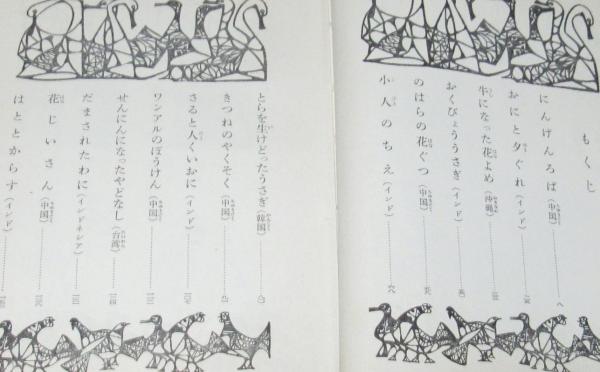 もくじ
にんげんろば（中国）
おにと夕ぐれ（インド）
牛になった花よめ（沖縄）
おくびょううさぎ（インド）
のはらの花ぐつ（中国）
小人のちえ（インド）
とらを生けどったうさぎ（韓国）
きつねのやくそく（中国）
さると人くいおに（インド）
ワンアルのぼうけん（中国）
せんにんになったやどなし（台湾）
だまされたわに（インドネシア）
花じいさん（中国）
はととからす（インド）